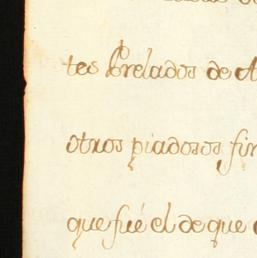 tes Prelados de
otros piadosos
que fué el de que